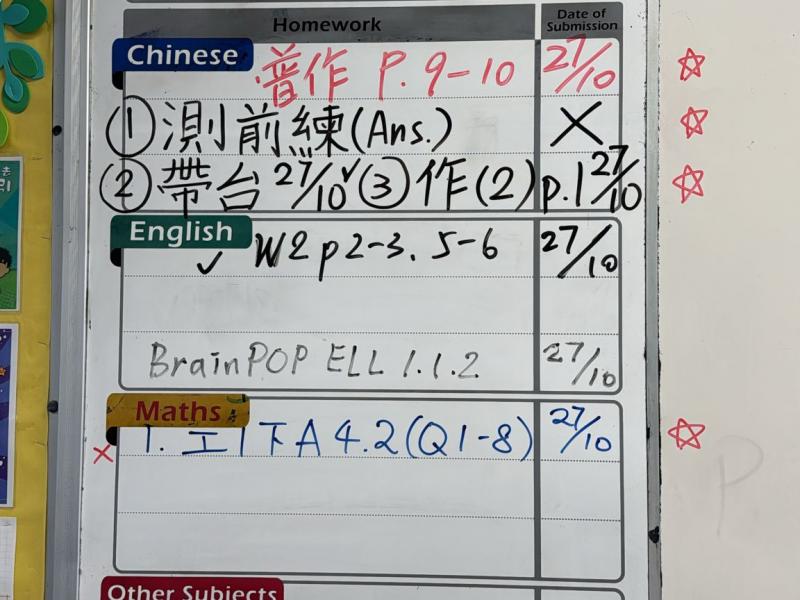 Homework
Date of Submission
Chinese
普作 P.9-10 27/10
① 測前練(Ans.) ×
② 帶台 27/10 ✓ ③ 作(2) p.1 27/10
English
✓ W2 p2-3. 5-6 27/10
BrainPOP ELL 1.1.2 27/10
Maths
× 1. 工1下A 4.2(Q1-8) 27/10
P
Other Subjects